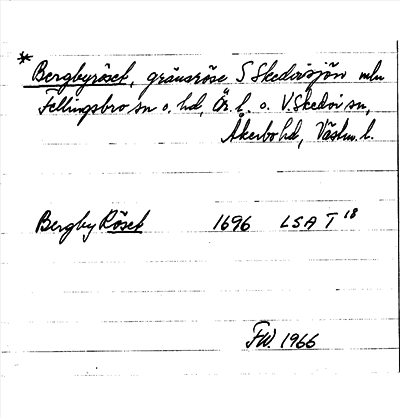 * Bergbyröset, gränsröse S Skedvisjön mln
Fellingsbro sn o. hd, Ör. l. o. V. Skedvi sn,
Åkerbo hd, Västm. l.
Bergby Röset 1696 LSA T 18
FW. 1966